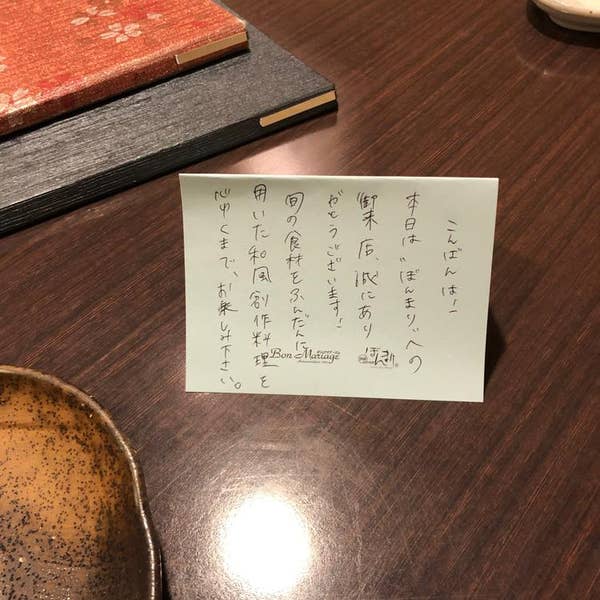 こんばんは!
本日は"ぼんまり"への
御来店、誠にあり
がとうございます!
旬の食材をふんだんに
用いた和風創作料理を
心ゆくまで、お楽しみ下さい。
Bon Mariage
ぼんまり